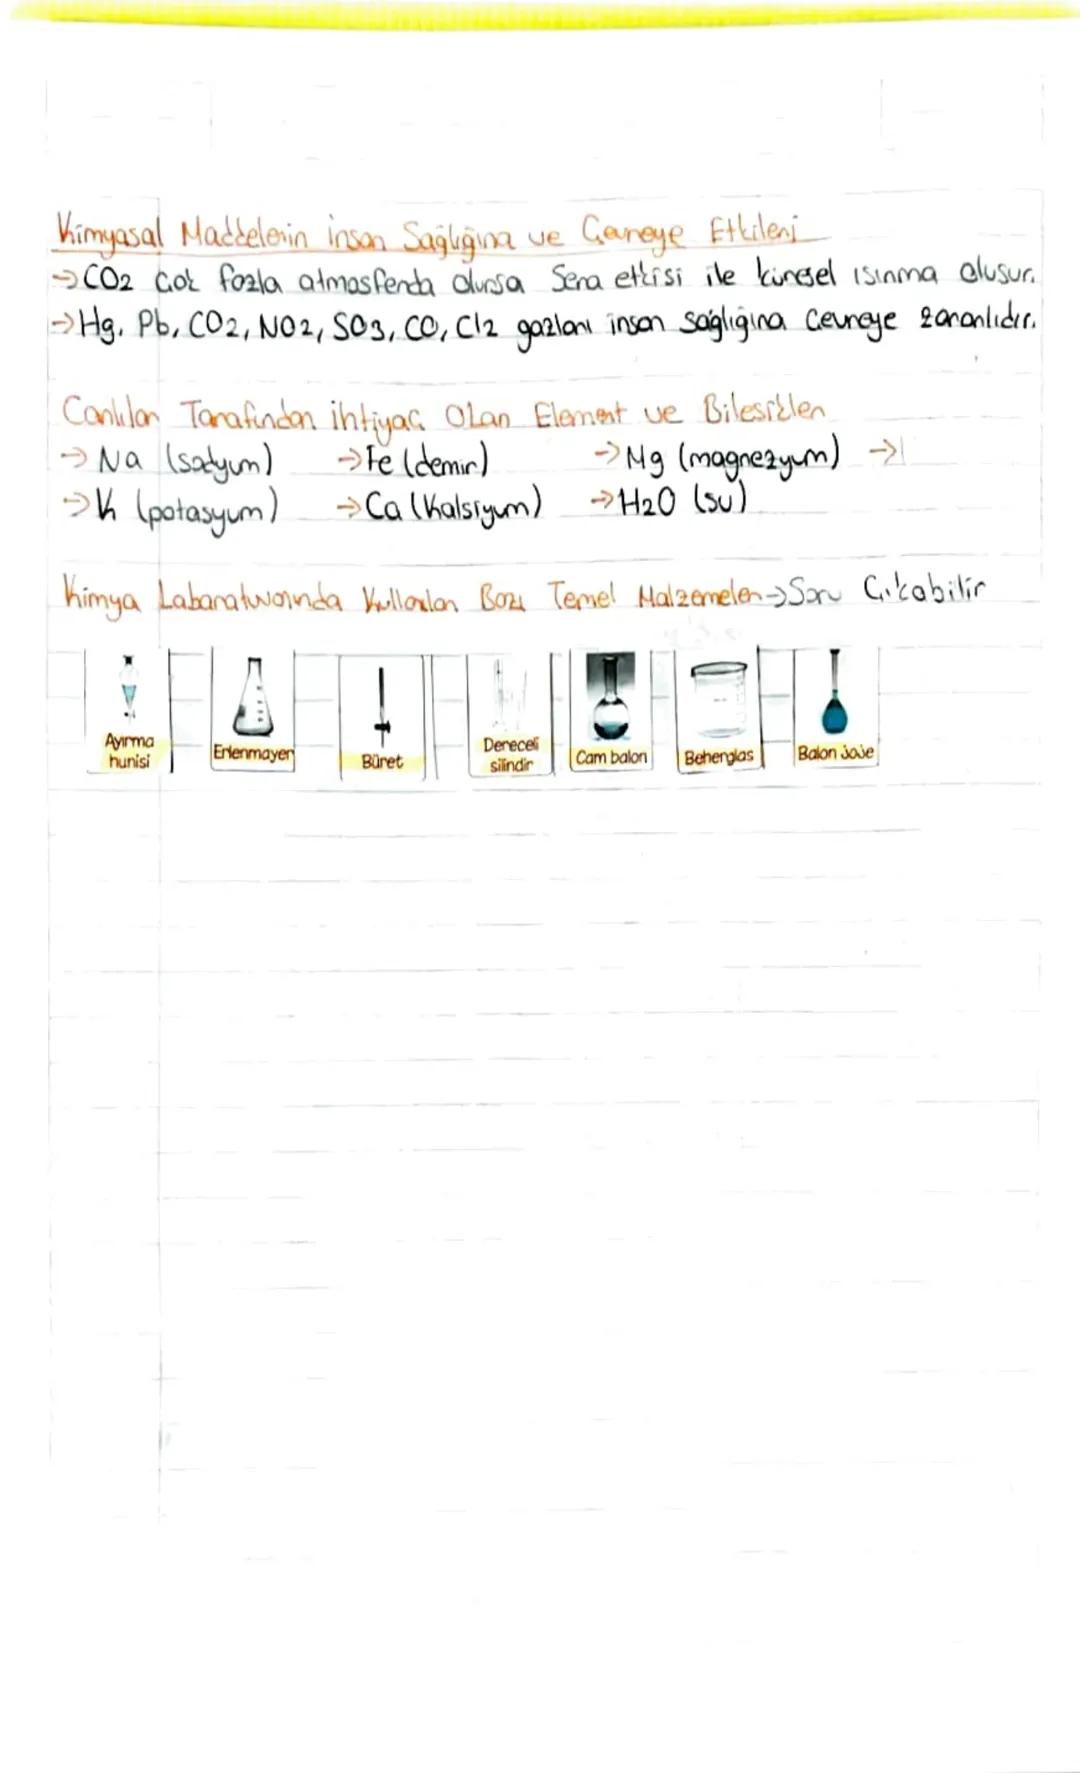 Kimyasal Maddelerin insan Sağlığına ve Çevreye Etkileri
→CO2 Çok fazla atmosferde olursa Sera etkisi ile küresel ısınma oluşur.
→Hg, Pb, CO2, NO2, SO3, CO, Cl2 gazları insan sağlığına Çevreye zararlıdır.
Canlılar Tarafından ihtiyaç Olan Element ve Bileşikler
→ Na (sodyum) →Fe (demir) →Mg (magnezyum) →
→K (potasyum) →Ca (Kalsiyum) →H2O (su)
Kimya Labaratuvarında Kullanılan Bazı Temel Malzemeler→Soru Çıkabilir
Ayırma hunisi
Erlenmayer
Büret
Dereceli silindir
Cam balon
Beherglas
Balon joje